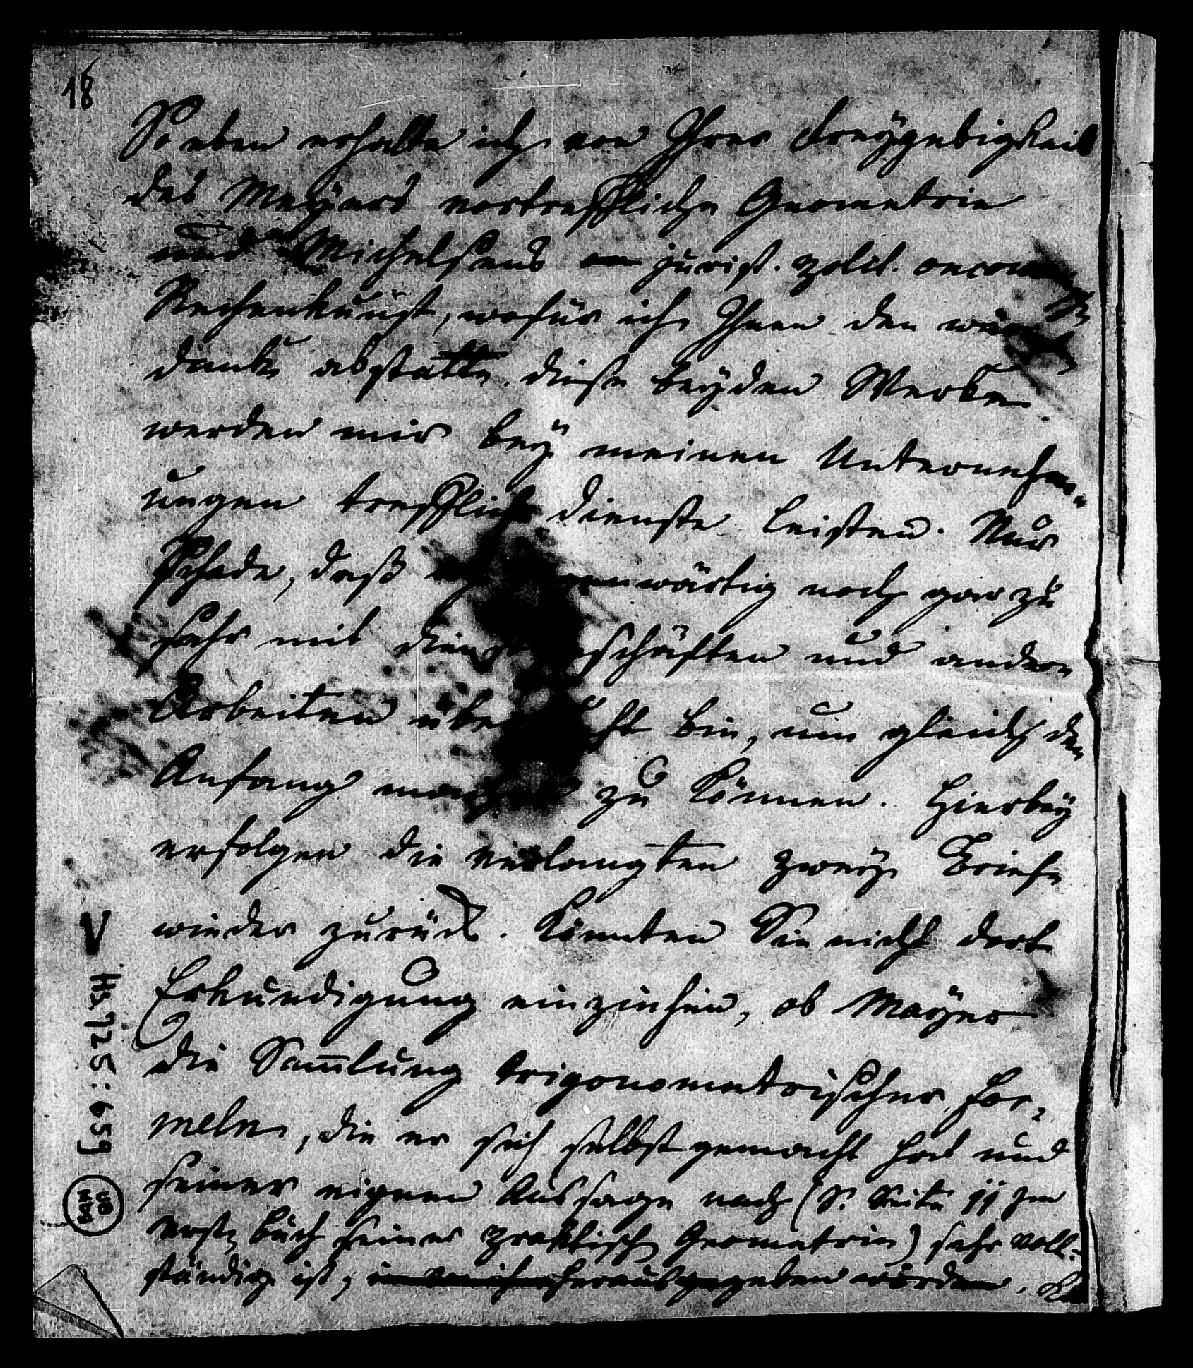 18
So eben erhalte ich von Ihrer Freygebigkeit
des Mayers vortreffliche Geometrie
und Michelsens jurist. polit. oecon.
Rechenkunst, wofür ich Ihnen den
Dank abstatte. diese beyden Werke
werden mir bey meinen Unternehm-
ungen treffliche Dienste leisten. Nur
Schade, daß noch gar zu
sehr mit und andern
Arbeiten bin, um gleich den
Anfang machen zu können. Hierbey
erfolgen die verlangten zwey Briefe
wieder zurück. Könnten Sie nicht dort
Erkundigung einziehen, ob Mayer
die Sam̄lung trigonometrischer For-
meln, die er sich selbst gemacht hat und
seiner eignen Aussage nach (S. Seite im
erst. Buch seiner praktisch. Geometrie) sehr voll-
ständig ist, herausgegeben
V
Hs 725:659